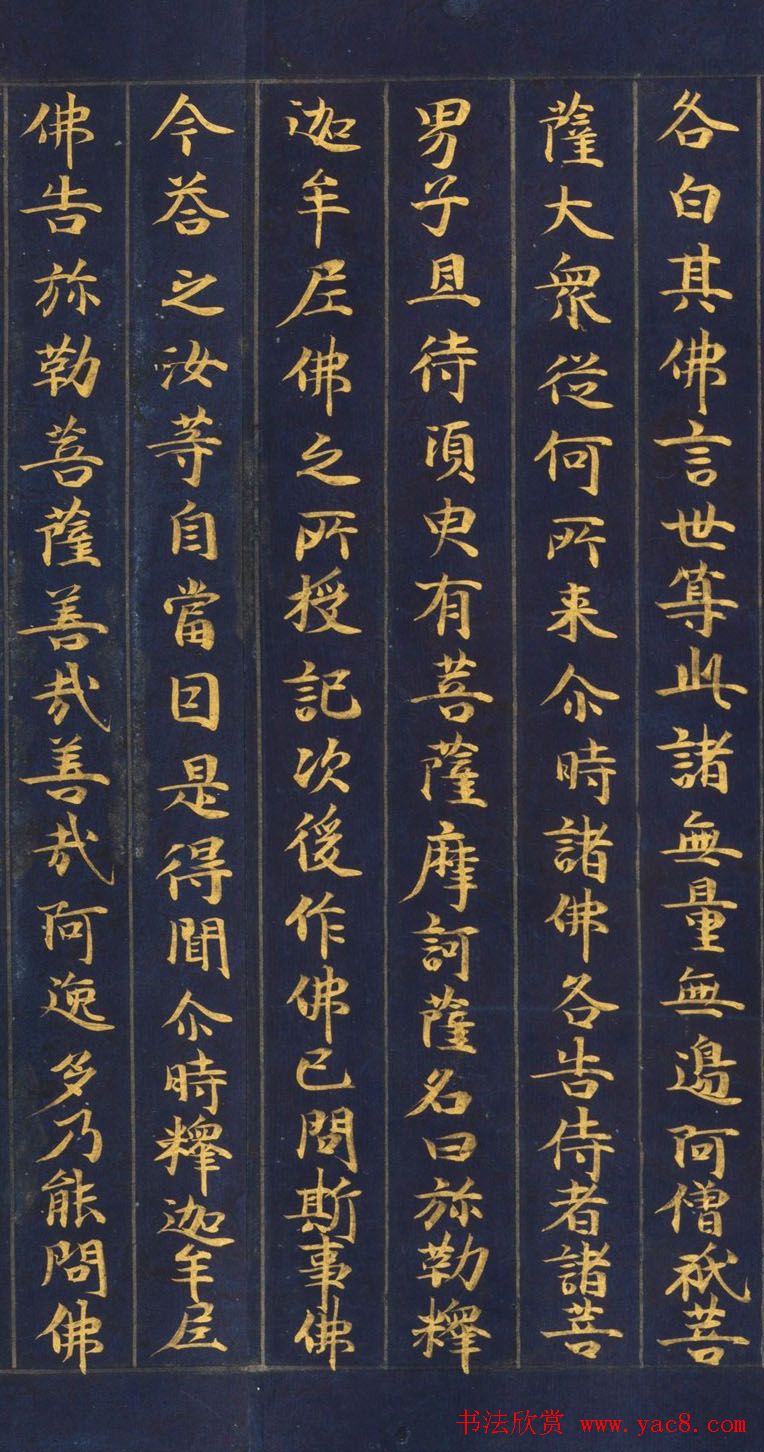 各白其佛言世尊此諸無量無邊阿僧祇菩
薩大眾從何所来尒時諸佛各告侍者諸菩
男子且待須臾有菩薩摩訶薩名曰弥勒釋
迦牟尼佛之所授記次後作佛已問斯事佛
今荅之汝等自當因是得聞尒時釋迦牟尼
佛告弥勒菩薩善哉善哉阿逸多乃能問佛
书法欣赏 www.yac8.com